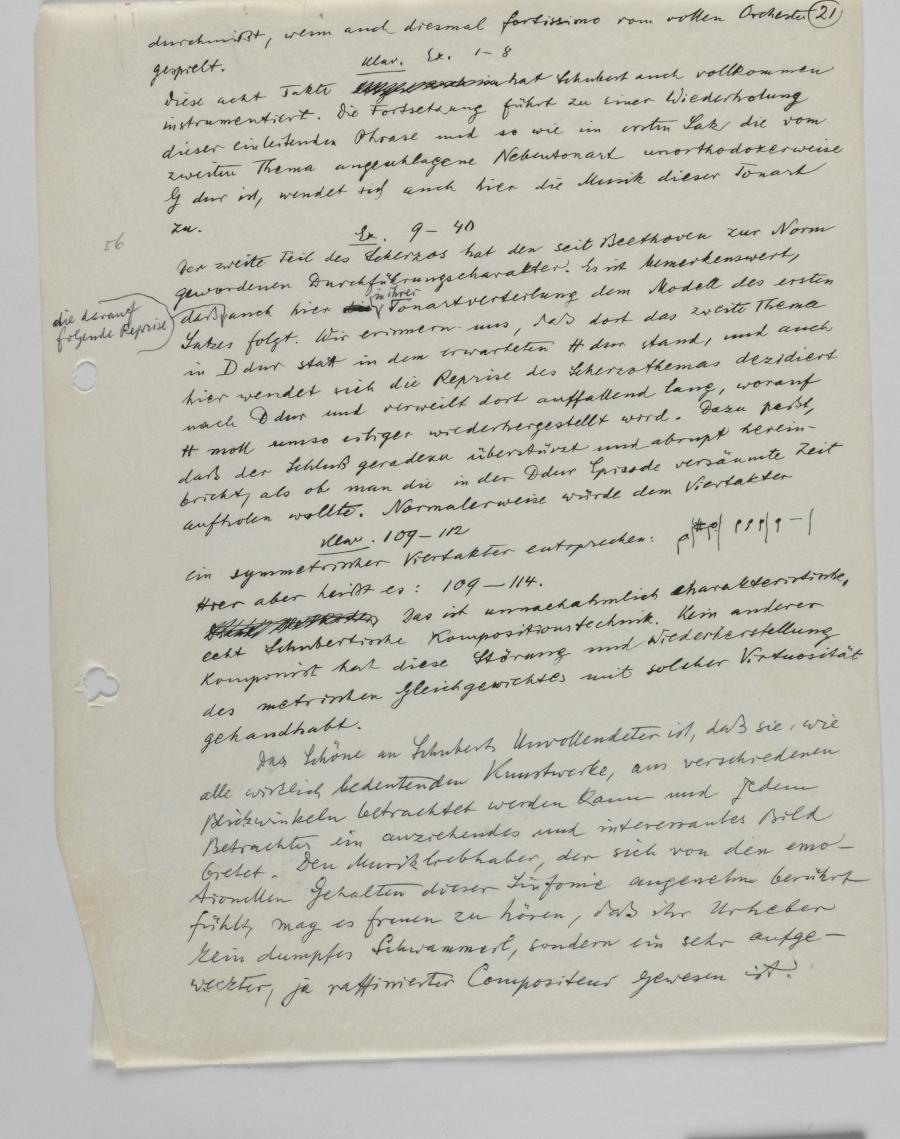 durchmißt, wenn auch diesmal fortissimo vom vollen Orchester 21
gespielt.
Klav. Ex. 1-8
Diese acht Takte hat Schubert auch vollkommen
instrumentiert. Die Fortsetzung führt zu einer Wiederholung
dieser einleitenden Phrase und so wie im ersten Satz die vom
zweiten Thema angeschlagene Nebentonart unorthodoxerweise
G dur ist, wendet sich auch hier die Musik dieser Tonart
zu.
Ex. 9-40
56
Der zweite Teil des Scherzos hat den seit Beethoven zur Norm
gewordenen Durchführungscharakter. Es ist bemerkenswert,
die darauf
folgende Reprise
daß auch hier in ihrer Tonartverteilung dem Modell des ersten
Satzes folgt. Wir erinnern uns, daß dort das zweite Thema
in D dur statt in dem erwarteten H dur stand, und auch
hier wendet sich die Reprise des Scherzothemas dezidiert
nach D dur und verweilt dort auffallend lang, worauf
H moll umso eiliger wiederhergestellt wird. Dazu paßt,
daß der Schluß geradezu überstürzt und abrupt herein-
bricht, als ob man die in der D dur Episode versäumte Zeit
aufholen wollte. Normalerweise würde dem Viertakter
Klav. 109-112
ein symmetrischer Viertakter entsprechen:
Hier aber heißt es: 109-114.
Das ist unnachahmlich charakteristische,
echt Schubertische Kompositionstechnik. Kein anderer
Komponist hat diese Störung und Wiederherstellung
des metrischen Gleichgewichtes mit solcher Virtuosität
gehandhabt.
Das Schöne an Schuberts Unvollendeter ist, daß sie, wie
alle wirklich bedeutenden Kunstwerke, aus verschiedenen
Blickwinkeln betrachtet werden kann und jedem
Betrachter ein anziehendes und interessantes Bild
bietet. Den Musikliebhaber, der sich von den emo-
tionellen Gehalten dieser Sinfonie angenehm berührt
fühlt, mag es freuen zu hören, daß ihr Urheber
kein dumpfes Schwammerl, sondern ein sehr aufge-
weckter, ja raffinierter Compositeur gewesen ist.